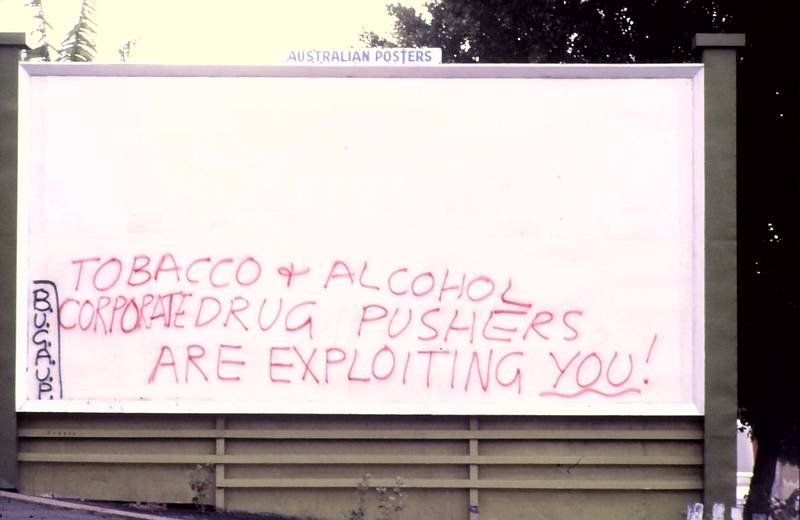 AUSTRALIAN POSTERS
TOBACCO & ALCOHOL
CORPORATE DRUG PUSHERS
ARE EXPLOITING YOU!
BUGAUP